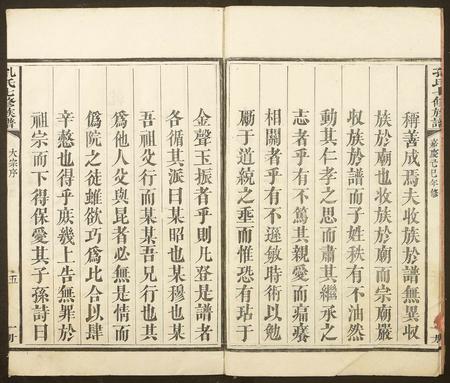 孔氏七修族譜 嘉慶己巳年修
稱善成焉夫收族於譜無異收
族於廟也收族於廟而宗廟嚴
收族於譜而子姓秩有不油然
動其仁孝之思而肅其繼承之
志者乎有不篤其親愛而痛癢
相關者乎有不遜敏時術以勉
勵于道統之垂而惟恐有玷于
金聲玉振者乎則凡登是譜者
各循其派曰某昭也某穆也某
吾祖父行而某某吾兄行也其
爲他人父與昆者必無是情而
僞院之徒雖欲巧爲比合以肆
辛憝也得乎庶幾上告無罪於
祖宗而下得保愛其子孫詩曰
孔氏七修族譜 大宗序 五